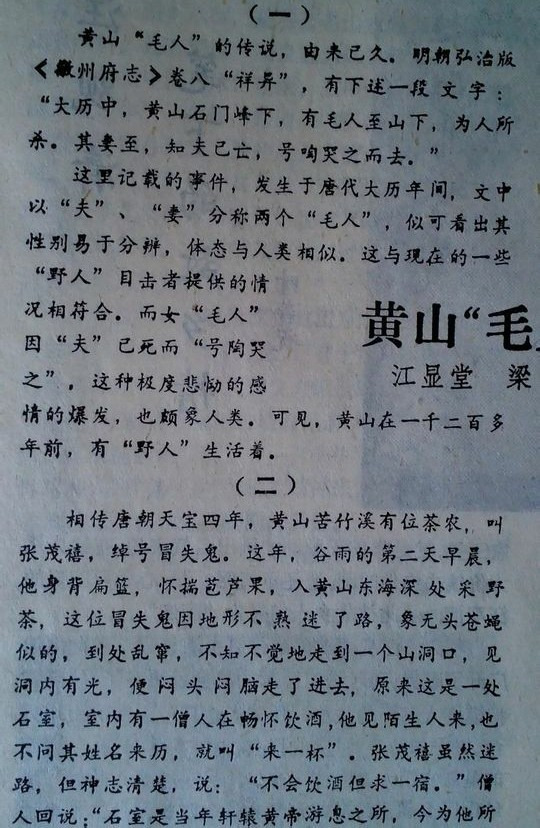 （一）
黄山“毛人”的传说，由来已久。明朝弘治版
《徽州府志》卷八“祥异”，有下述一段文字：
“大历中，黄山石门峰下，有毛人至山下，为人所
杀。其妻至，知夫已亡，号啕哭之而去。”
这里记载的事件，发生于唐代大历年间，文中
以“夫”、“妻”分称两个“毛人”，似可看出其
性别易于分辨，体态与人类相似。这与现在的一些
“野人”目击者提供的情
况相符合。而女“毛人”
因“夫”已死而“号陶哭
之”，这种极度悲恸的感
情的爆发，也颇象人类。可见，黄山在一千二百多
年前，有“野人”生活着。
黄山“毛
江显堂 梁
（二）
相传唐朝天宝四年，黄山苦竹溪有位茶农，叫
张茂禧，绰号冒失鬼。这年，谷雨的第二天早晨，
他身背扁篮，怀揣苞芦果，入黄山东海深处采野
茶，这位冒失鬼因地形不熟迷了路，象无头苍蝇
似的，到处乱窜，不知不觉地走到一个山洞口，见
洞内有光，便闷头闷脑走了进去，原来这是一处
石室，室内有一僧人在畅怀饮酒，他见陌生人来，也
不问其姓名来历，就叫“来一杯”。张茂禧虽然迷
路，但神志清楚，说：“不会饮酒但求一宿。”僧
人回说：“石室是当年轩辕黄帝游息之所，今为他所